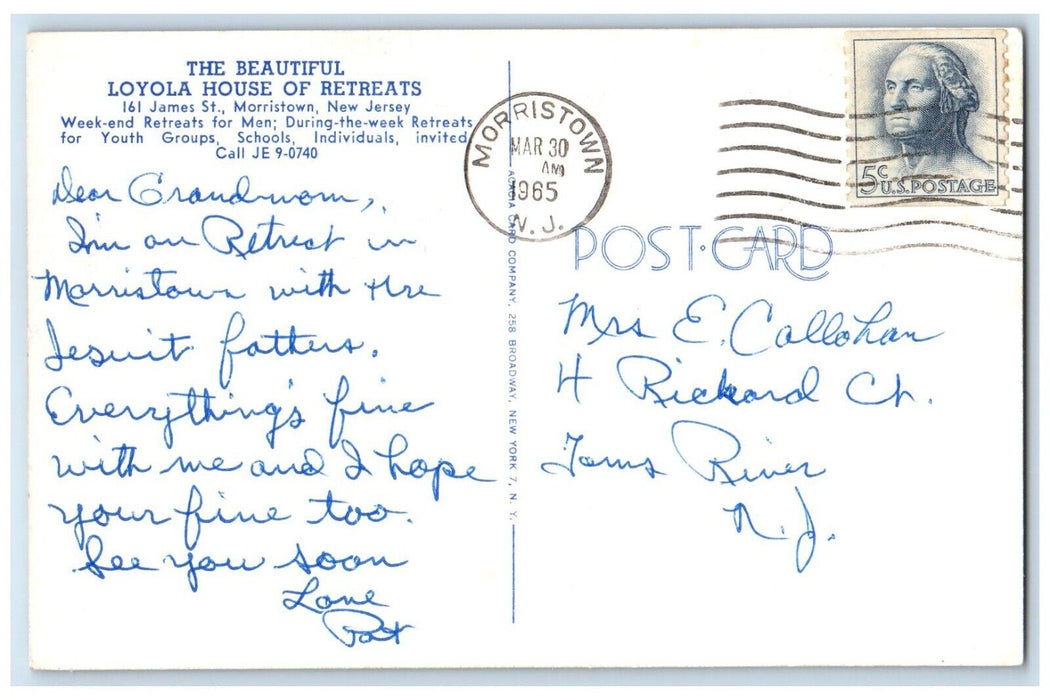 THE BEAUTIFUL
LOYOLA HOUSE OF RETREATS
161 James St., Morristown, New Jersey
Week-end Retreats for Men; During-the-week Retreats
for Youth Groups, Schools, Individuals, invited
Call JE 9-0740
Dear Grandmom,
I'm on Retreat in
Morristown with the
Jesuit fathers.
Everything's fine
with me and I hope
your fine too.
See you soon
Love
Pat
ACACIA CARD COMPANY, 258 BROADWAY, NEW YORK 7, N. Y.
MORRISTOWN
MAR 30
AM
1965
N. J.
5c U.S. POSTAGE
POST CARD
Mrs E. Callohan
4 Rickard Ch.
Toms River
N. J.